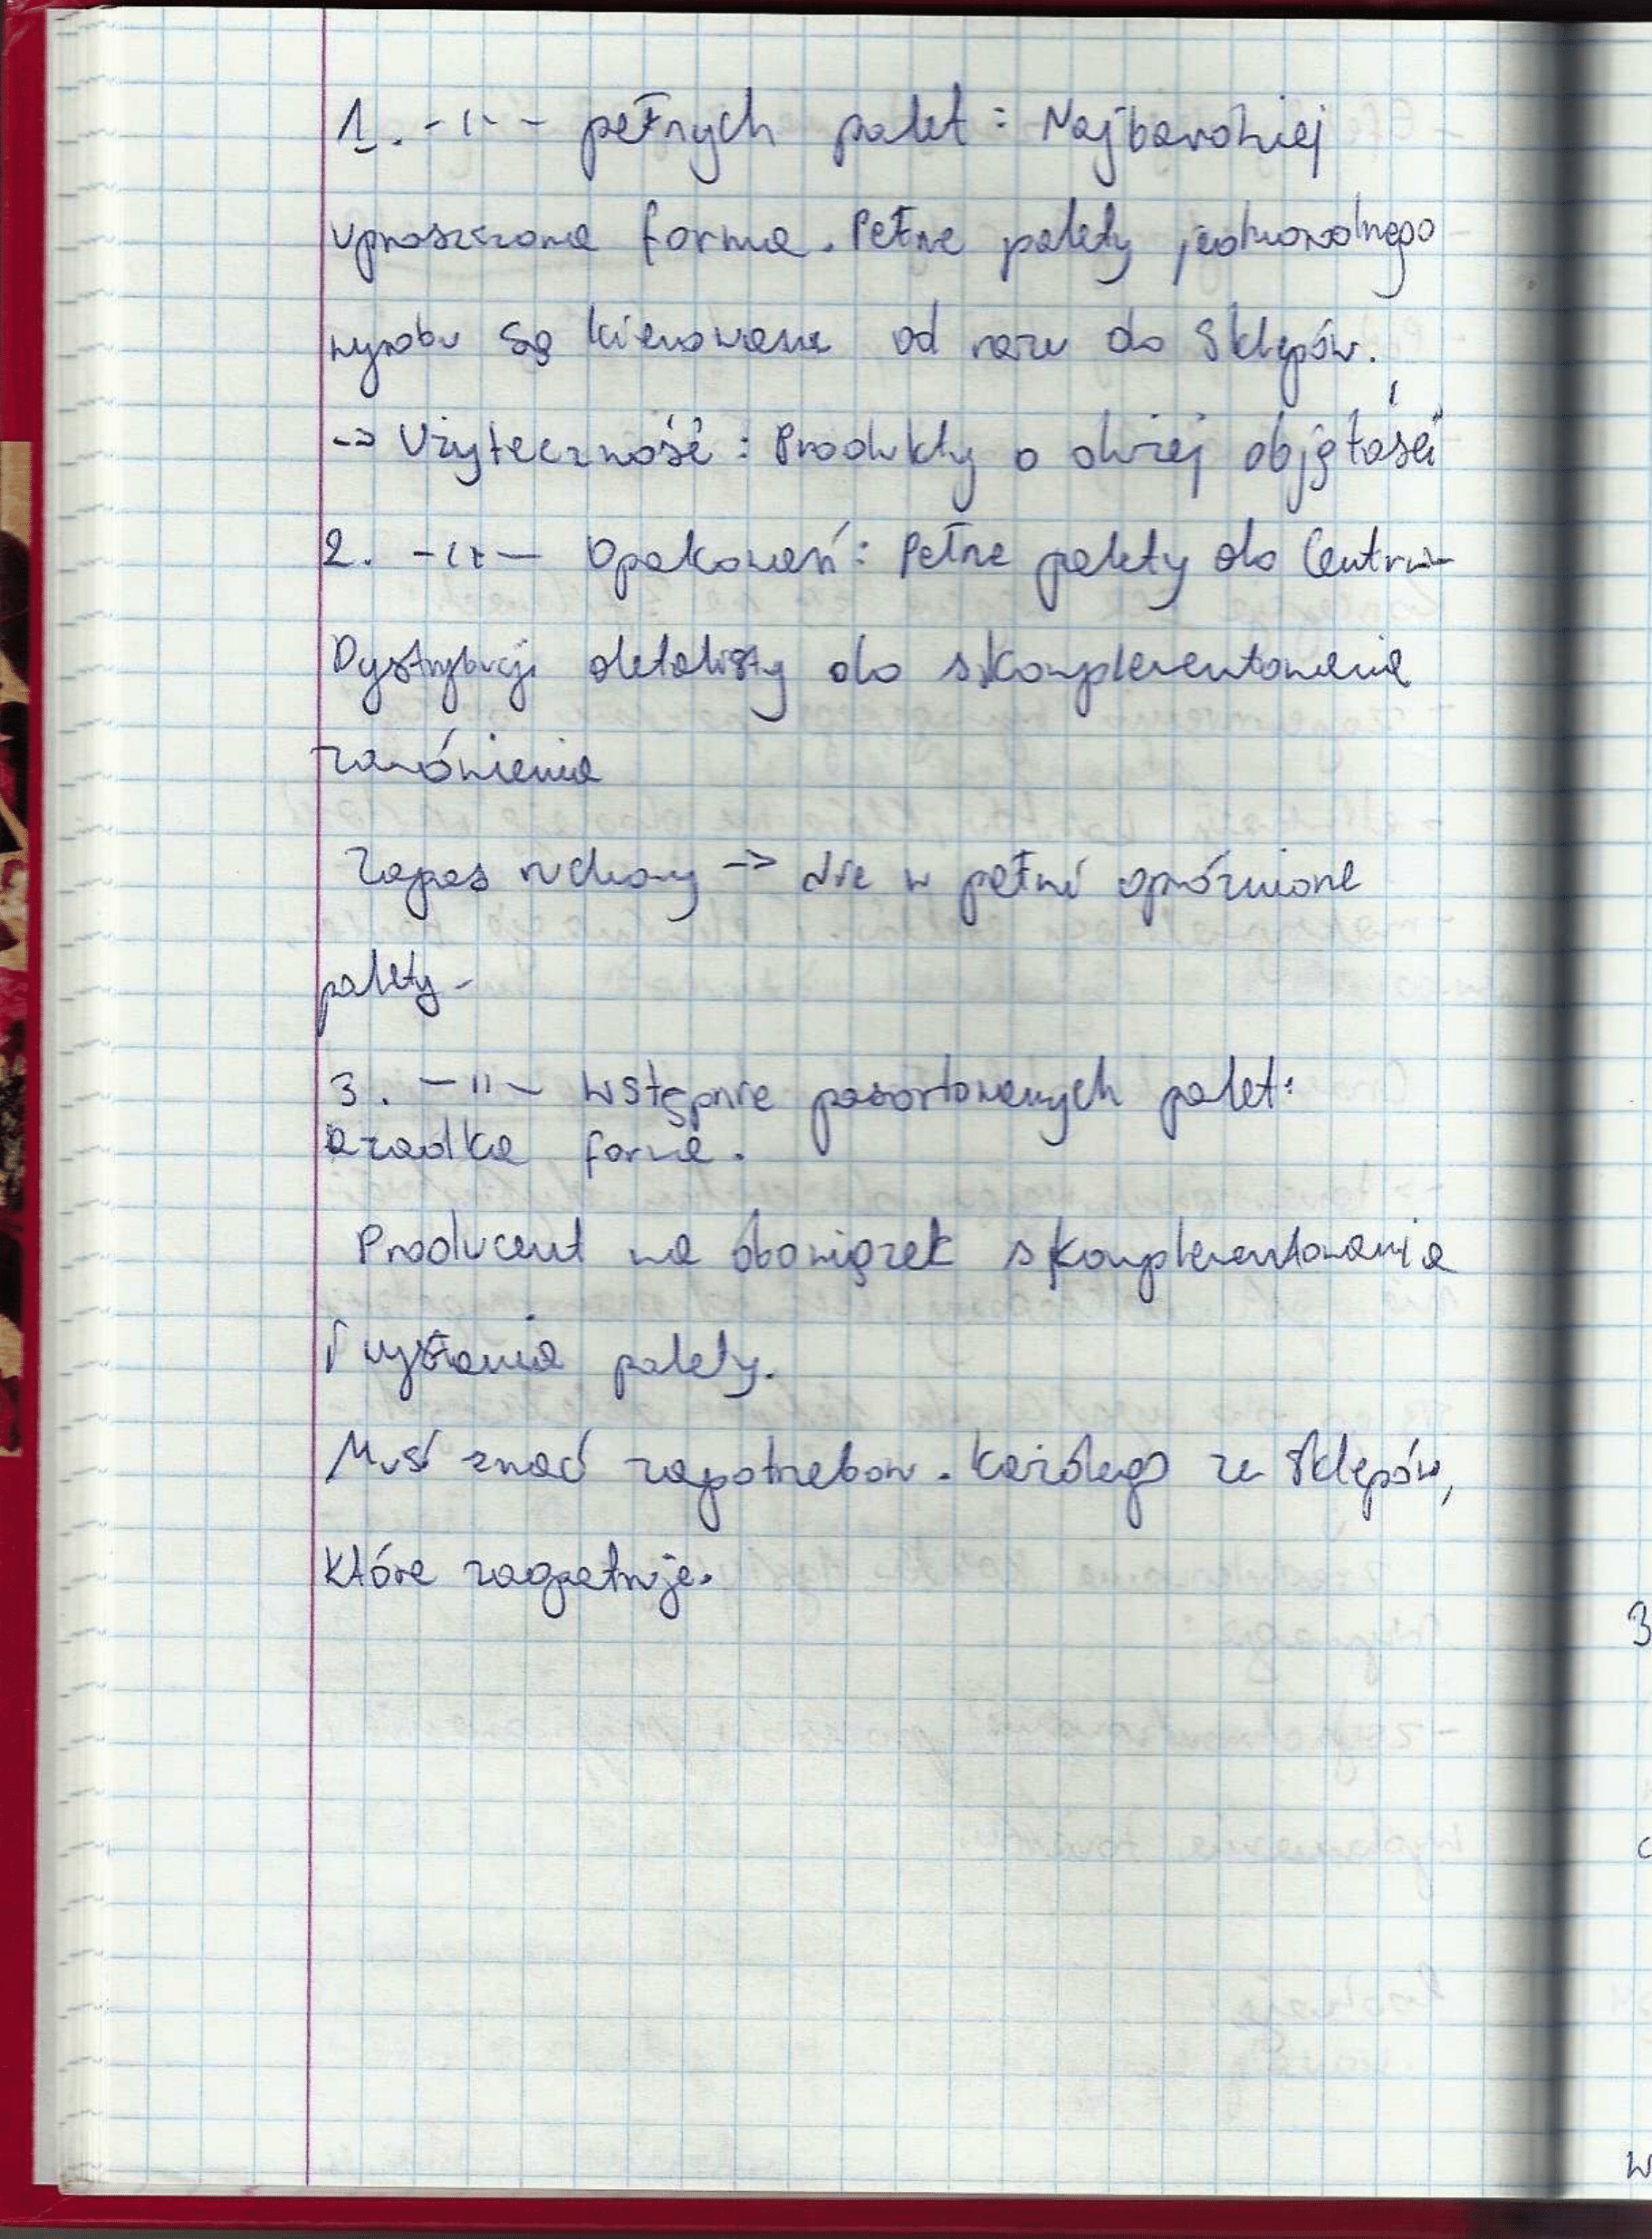 1. -||- pełnych palet: Najbardziej
uproszczona forma. Pełne palety jednorodnego
wyrobu są kierowane od razu do sklepów.
-> Użyteczność: Produkty o dużej objętości
2. -||- Opakowań: Pełne palety do Centrum
Dystrybucji detalisty do skomplementowania
zamówienia
Zapas ruchomy -> nie w pełni opróżnione
palety.
3. -||- wstępnie posortowanych palet:
Rzadka forma.
Producent ma obowiązek skomplementowania
i wysłania palety.
Musi znać zapotrzebow. każdego ze sklepów,
które zaopatruje.